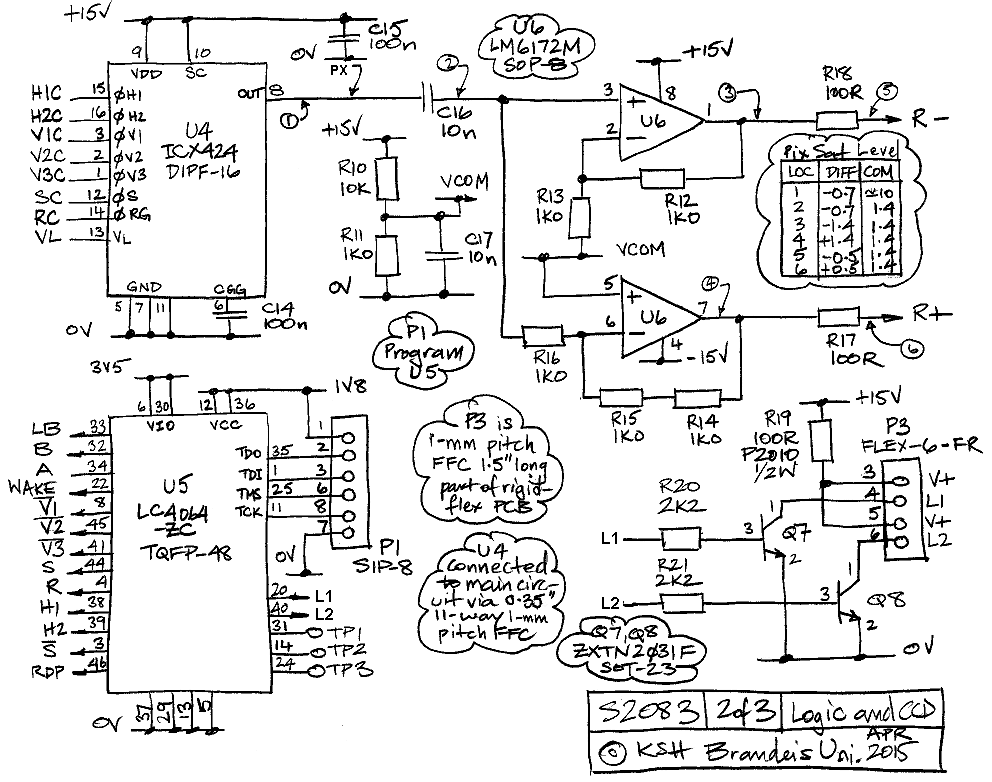 +15V
9 10
VDD SC
C15
100n
0V
PX
U6
LM6172M
SOP-8
+15V
H1C 15 ØH1
H2C 16 ØH2
V1C 3 ØV1
V2C 2 ØV2
V3C 1 ØV3
SC 12 ØS
RC 14 ØRG
VL 13 VL
OUT 8
U4
ICX424
DIPF-16
GND CGG
5 7 11 6
0V
C14
100n
1
2
C16
10n
+15V
R10
10K
VCOM
R11
1K0
C17
10n
0V
3 + 8 1
2 - U6
3
R18
100R
5
R-
R13
1K0
R12
1K0
VCOM
Pix Sat Level
LOC DIFF COM
1 -0.7 ≈10
2 -0.7 1.4
3 -1.4 1.4
4 +1.4 1.4
5 -0.5 1.4
6 +0.5 1.4
5 + 7
6 - U6
4
-15V
4
R17
100R
6
R+
R16
1K0
R15
1K0
R14
1K0
P1
Program
U5
3V5
1V8
6 30 12 36
VIO VCC
LB 33
B 32
A 34
WAKE 22
V1 8
V2 45
V3 41
S 44
R 4
H1 38
H2 39
S 3
RDP 46
U5
LC4064
-ZC
TQFP-48
TDO 35
TDI 1
TMS 25
TCK 11
1
2
3
6
8
7
0V
P1
SIP-8
20 L1
40 L2
31 TP1
14 TP2
24 TP3
0V
37 29 13 5
P3 is
1-mm pitch
FFC 1.5" long
part of rigid-
flex PCB
U4
connected
to main circ-
uit via 0.35"
11-way 1-mm
pitch FFC
R19
100R
P2010
1/2W
+15V
P3
FLEX-6-FR
3 V+
4 L1
5 V+
6 L2
R20
2K2
L1
3 1 Q7
2
R21
2K2
L2
3 1 Q8
2
0V
Q7, Q8
ZXTN2031F
SOT-23
S2083 2 of 3 Logic and CCD
© KSH Brandeis Uni. APR 2015